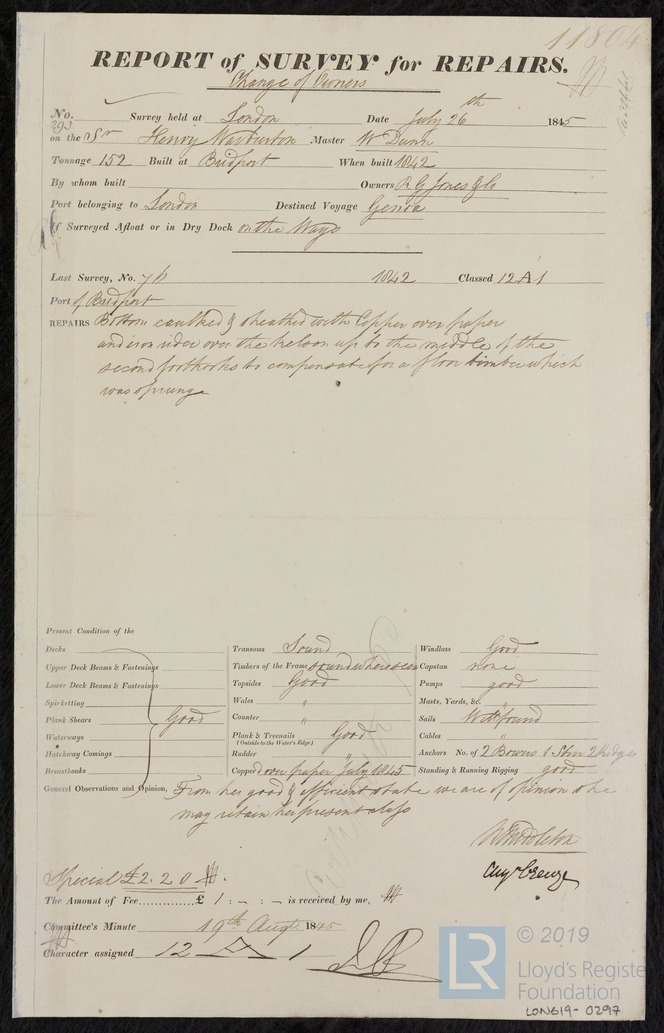 11804
REPORT of SURVEY for REPAIRS.
Change of Owners
No. 293 Survey held at London Date July 26th 1845
on the Sr Henry Warburton Master W Dunn
Tonnage 152 Built at Bridport When built 1842
By whom built Owners R G Jones & Co
Port belonging to London Destined Voyage Genoa
If Surveyed Afloat or in Dry Dock on the Ways
Last Survey, No. 76 1842 Classed 12 A 1
Port of Bridport
REPAIRS Bottom caulked & sheathed with Copper over paper
and iron rider over the kelson up to the middle of the
second foothooks to compensate for a floor timber which
was sprung
Present Condition of the
Decks
Upper Deck Beams & Fastenings
Lower Deck Beams & Fastenings
Spirketting
Plank Shears Good
Waterways
Hatchway Comings
Breasthooks
Transoms Sound
Timbers of the Frame sound where seen
Topsides Good
Wales "
Counter "
Plank & Treenails Good
(Outside to the Water's Edge)
Rudder "
Copper'd over paper July 1845
Windlass Good
Capstan none
Pumps good
Masts, Yards, &c. "
Sails Well found
Cables "
Anchors No. of 2 Bowers 1 Strm 2 Kedges
Standing & Running Rigging good
General Observations and Opinion, From her good & efficient state we are of opinion she
may retain her present class
N Middleton
Augn Creuze
Special £2.2.0
The Amount of Fee £ 1 : - : - is received by me,
Committee's Minute 19th Augt 1845
Character assigned 12 A 1
LR
© 2019
Lloyd's Register
Foundation
LON619-0297